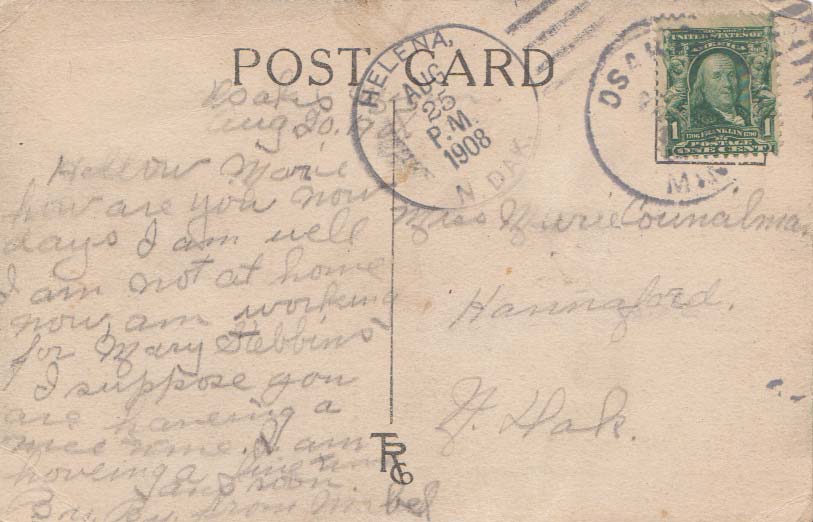 POST CARD
HELENA,
AUG
25
P.M.
1908
N. DAK.
OSAK
MIN
UNITED STATES OF
AMERICA
1 1706 FRANKLIN 1790 1
POSTAGE
ONE CENT
Osakis
Aug 20,
Hellow Marie
how are you now
days I am well
I am not at home
now, am working
for Mary Stebbins
I suppose you
are haveing a
nice time. I am
hoveing a fine time
soon
By, By, from Mabel
Miss Marie Counalman
Hannaford.
N. Dak.
TRCo